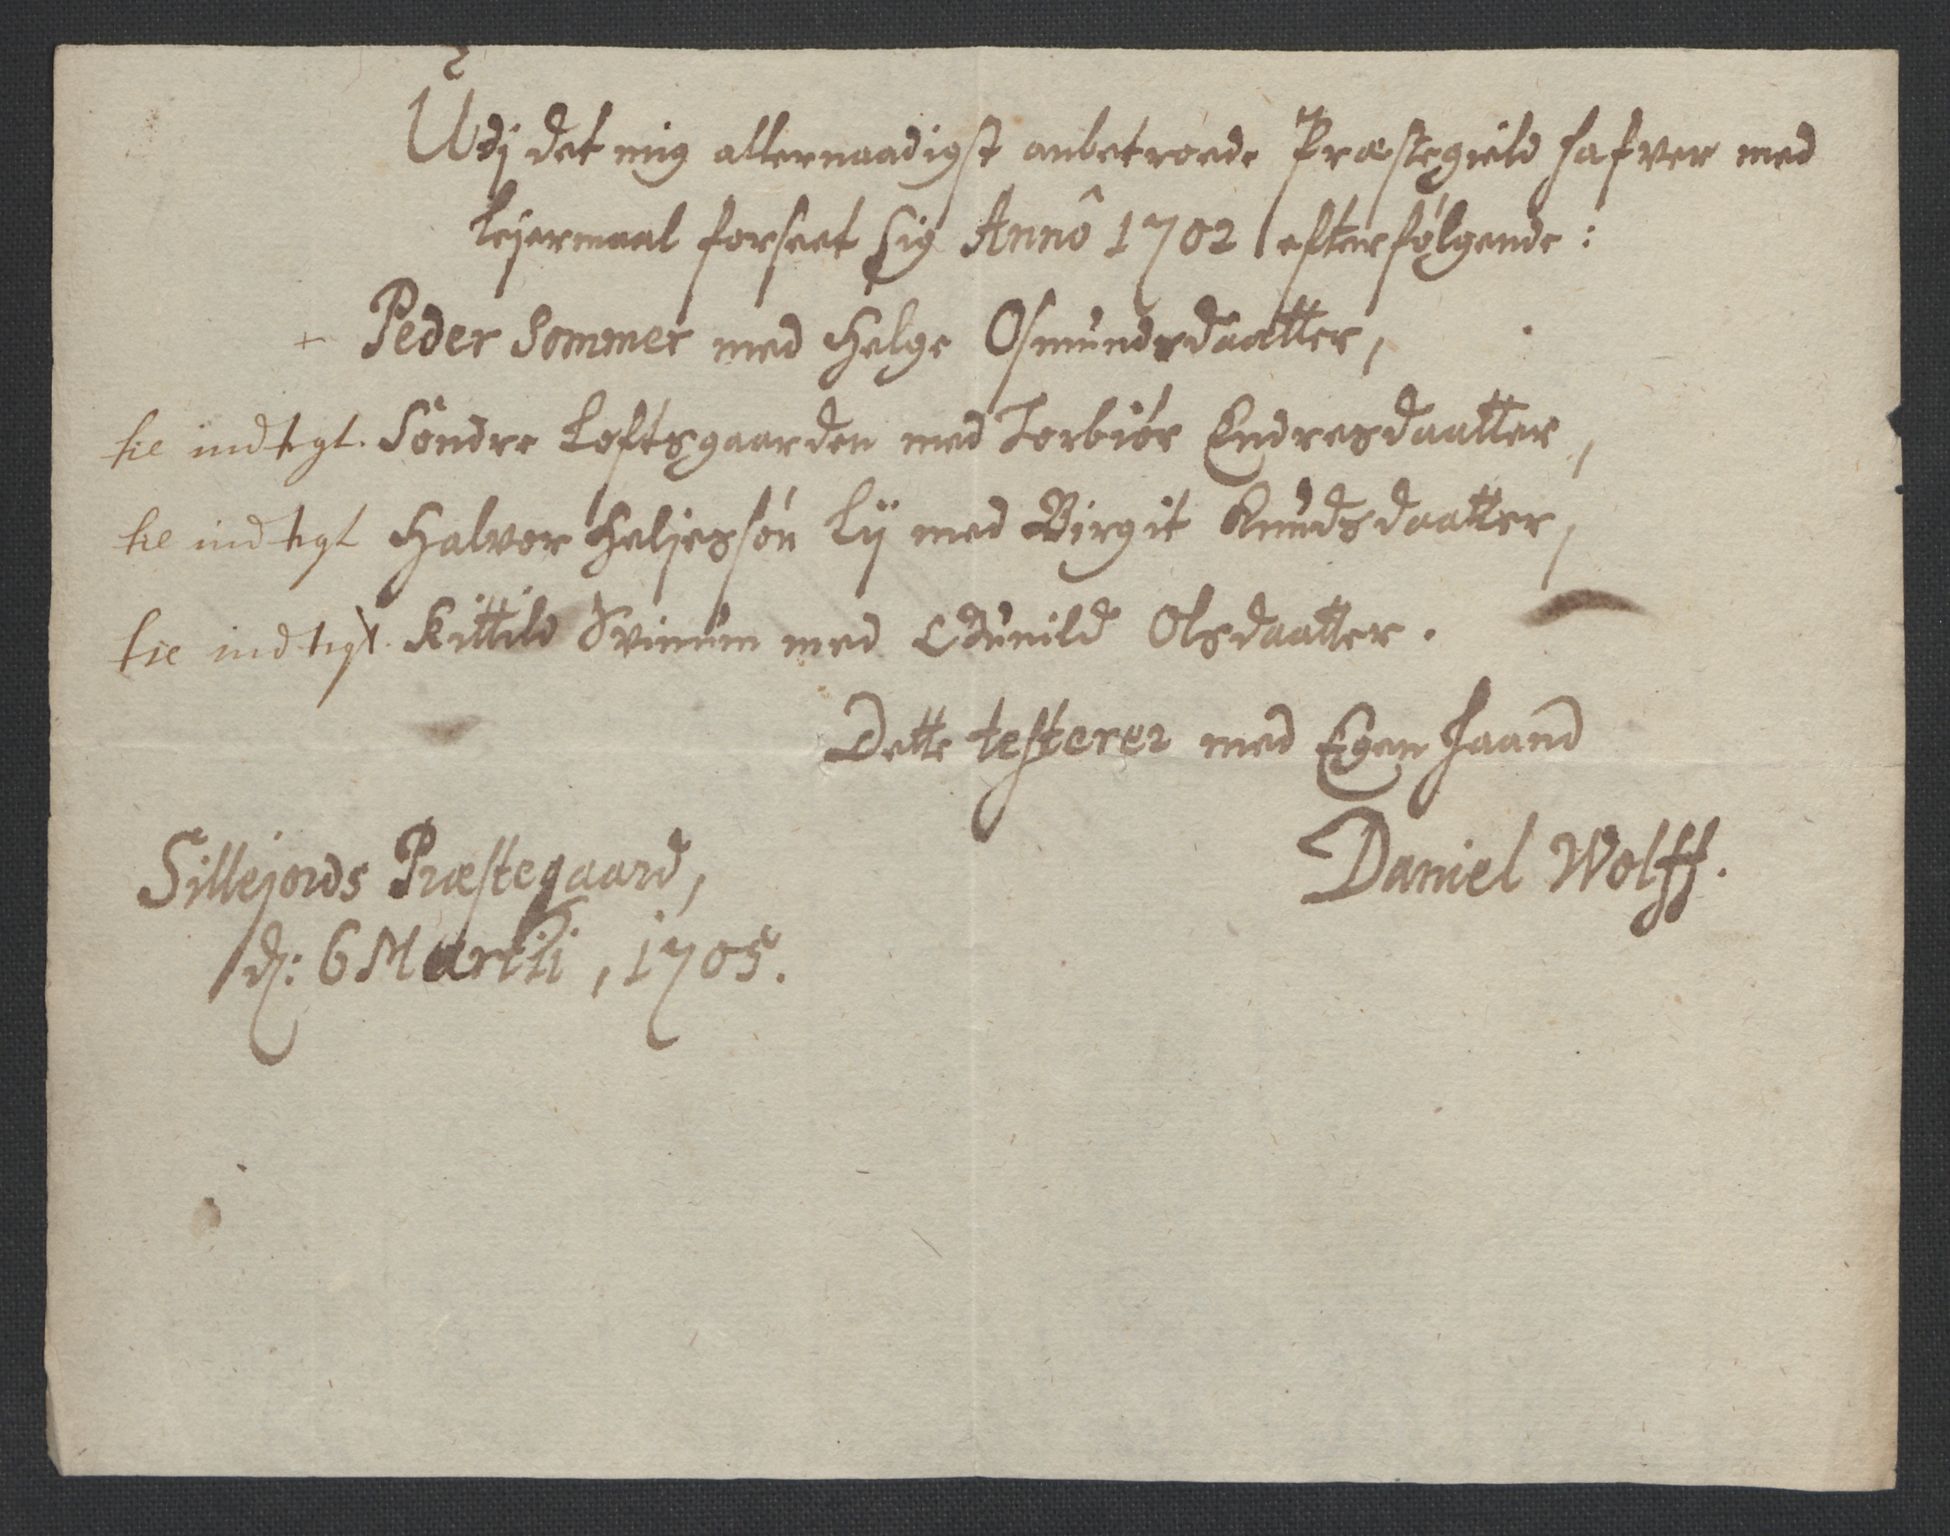 Udj det mig allernaadigst anbetroede Præstegield hafver med
Lejermaal forseet sig Annô 1702 efterfølgende:
+ Peder Sommer med Helge Osmundsdaatter,
indtgt. Söndre Loftsgaarden med Torbiör Endresdaatter,
indtgt Halvor Heljessön Lij med Birgit Knudsdaatter,
indtgt. Kittild Svinum med Gunild Olsdaatter.
Dette testerer med Egen haand
Daniel Wolff.
Sillejords Præstegaard,
d: 6 Martii, 1705.